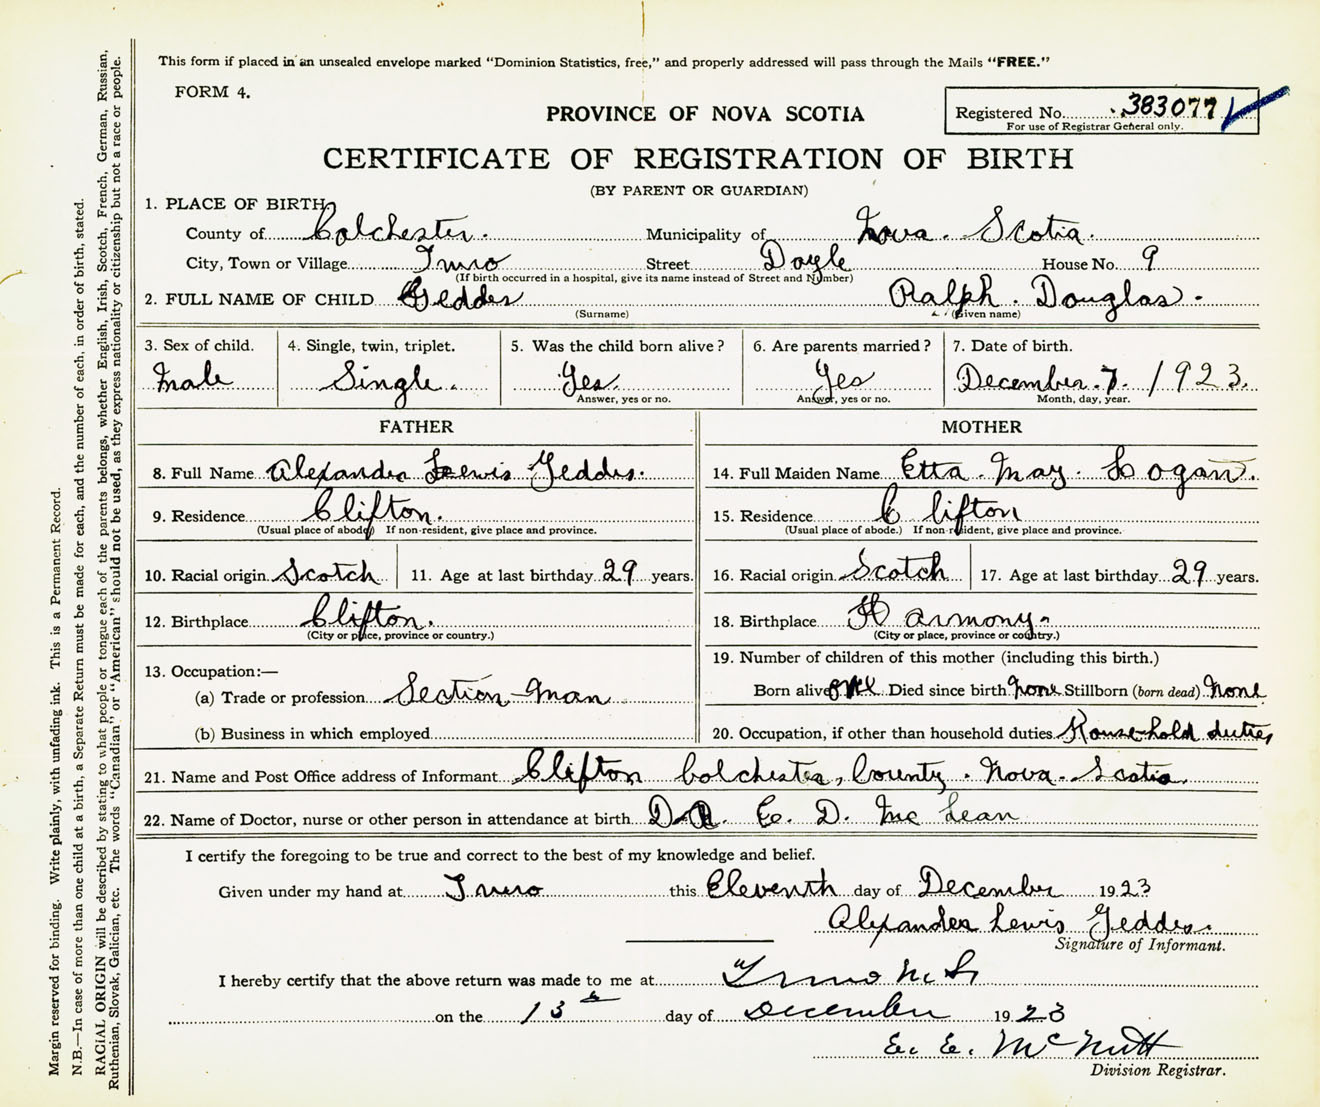 This form if placed in an unsealed envelope marked "Dominion Statistics, free," and properly addressed will pass through the Mails "FREE."
FORM 4.
Registered No. 383077
For use of Registrar General only.
PROVINCE OF NOVA SCOTIA
CERTIFICATE OF REGISTRATION OF BIRTH
(BY PARENT OR GUARDIAN)
1. PLACE OF BIRTH
County of Colchester. Municipality of Nova. Scotia.
City, Town or Village Truro Street Doyle House No. 9
(If birth occurred in a hospital, give its name instead of Street and Number)
2. FULL NAME OF CHILD Geddes Ralph. Douglas.
(Surname) (Given name)
3. Sex of child. 4. Single, twin, triplet. 5. Was the child born alive? 6. Are parents married? 7. Date of birth.
Male Single. Yes. Yes December. 7. 1923.
Answer, yes or no. Answer, yes or no. Month, day, year.
FATHER MOTHER
8. Full Name Alexander Lewis Geddes. 14. Full Maiden Name Etta. May. Logan.
9. Residence Clifton. 15. Residence Clifton
(Usual place of abode) If non-resident, give place and province. (Usual place of abode.) If non-resident, give place and province.
10. Racial origin Scotch 11. Age at last birthday 29 years. 16. Racial origin Scotch 17. Age at last birthday 29 years.
12. Birthplace Clifton. 18. Birthplace Harmony.
(City or place, province or country.) (City or place, province or country.)
13. Occupation:— 19. Number of children of this mother (including this birth.)
(a) Trade or profession Section Man Born alive one Died since birth none Stillborn (born dead) None
(b) Business in which employed 20. Occupation, if other than household duties Household duties
21. Name and Post Office address of Informant Clifton Colchester, County. Nova. Scotia
22. Name of Doctor, nurse or other person in attendance at birth DR. E. D. Mc Lean
I certify the foregoing to be true and correct to the best of my knowledge and belief.
Given under my hand at Truro this Eleventh day of December 1923
Alexander Lewis Geddes.
Signature of Informant.
I hereby certify that the above return was made to me at Truro N. S
on the 13th day of December 1923
E. E. McNutt
Division Registrar.
Margin reserved for binding. Write plainly, with unfading ink. This is a Permanent Record.
N.B.—In case of more than one child at a birth, a Separate Return must be made for each, and the number of each, in order of birth, stated.
RACIAL ORIGIN will be described by stating to what people or tongue each of the parents belongs, whether English, Irish, Scotch, French, German, Russian,
Ruthenian, Slovak, Galician, etc. The words "Canadian" or "American" should not be used, as they express nationality or citizenship but not a race or people.